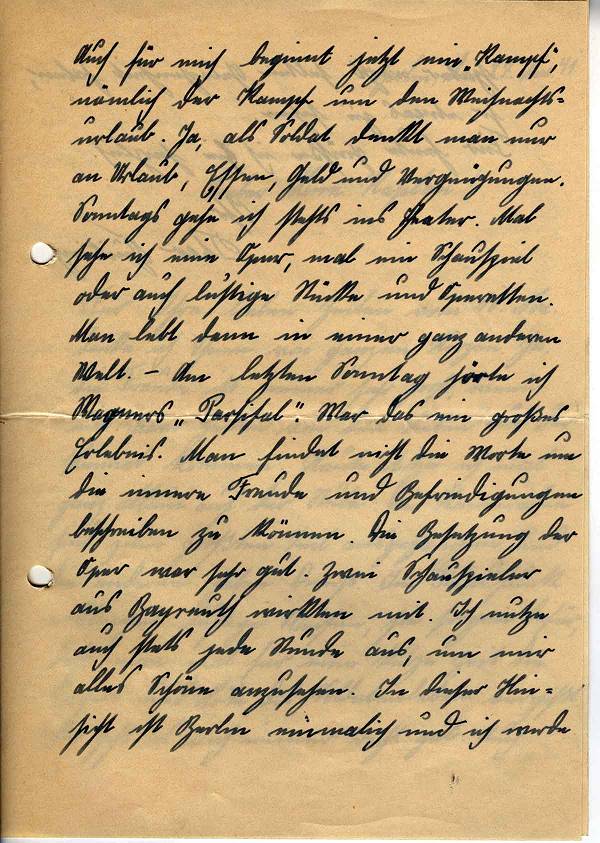 Auch für mich beginnt jetzt ein „Kampf",
nämlich der Kampf um den Weihnachts-
urlaub. Ja, als Soldat denkt man nur
an Urlaub, Essen, Geld und Vergnügungen.
Sonntags gehe ich stehts ins Theater. Mal
sehe ich eine Oper, mal ein Schauspiel
oder auch lustige Stücke und Operetten.
Man lebt dann in einer ganz anderen
Welt. – Am letzten Sonntag hörte ich
Wagners „Parsifal". War das ein großes
Erlebnis. Man findet nicht die Worte um
die innere Freude und Befriedigungen
beschreiben zu können. Die Besetzung der
Oper war sehr gut. Zwei Schauspieler
aus Bayreuth wirkten mit. Ich nutze
auch stets jede Stunde aus, um mir
alles Schöne anzusehen. In dieser Hin-
sicht ist Berlin einmalich und ich werde